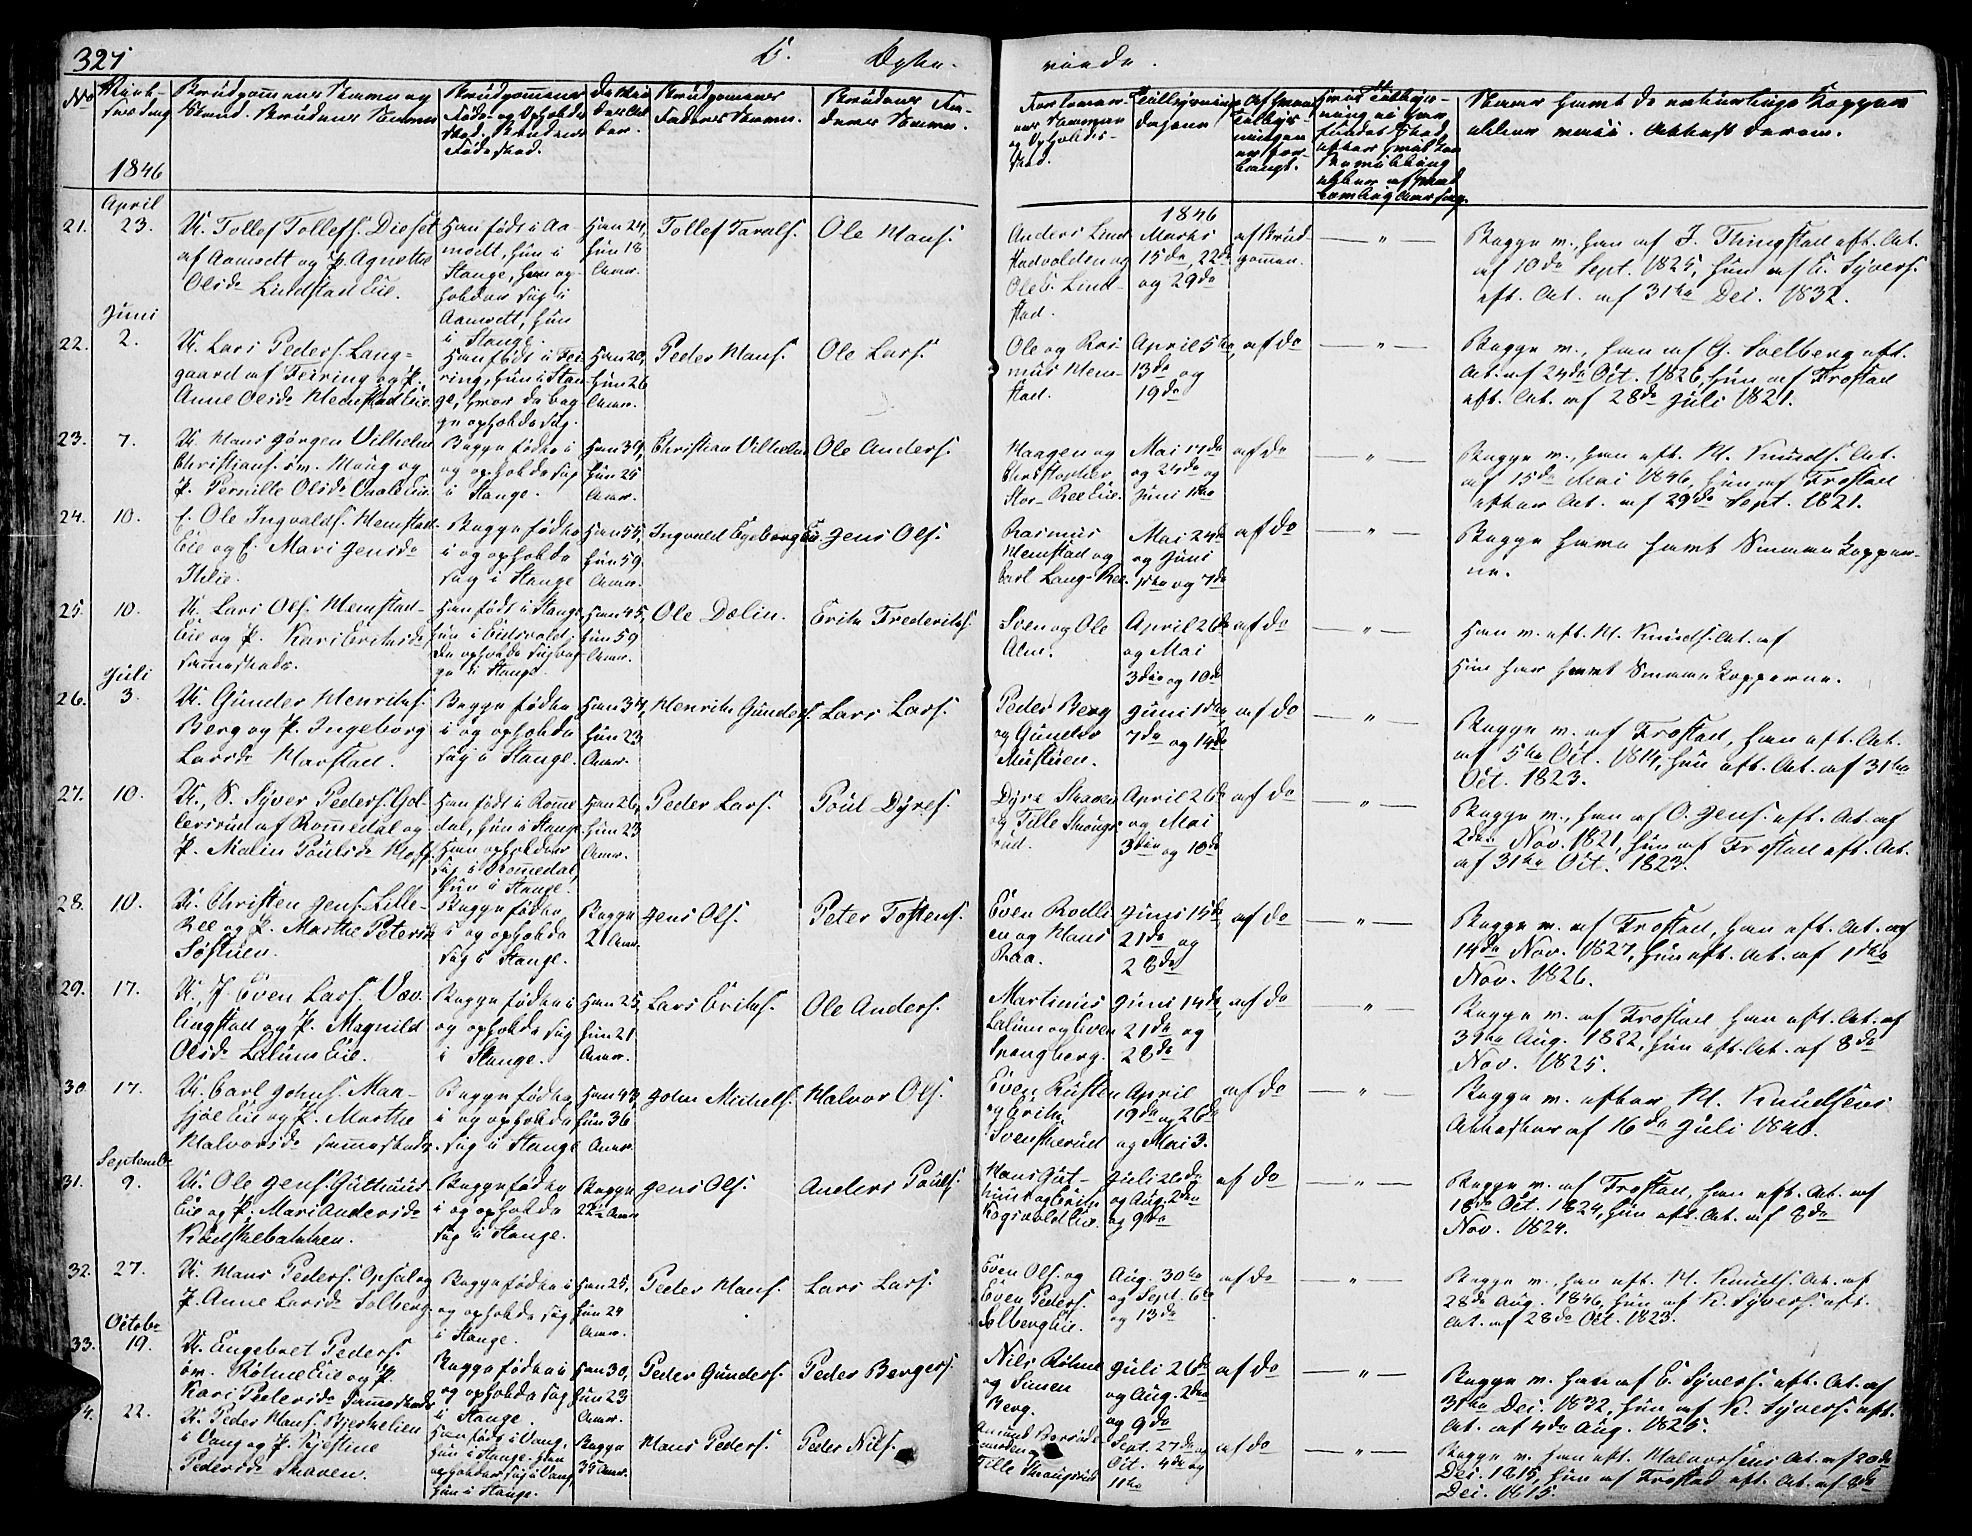 327
E. Egte-
viede.
No
Vielsesdag
1846
Brudgommens Navn og
Stand. Brudens Navn
Brudgommens
Føde- og Opholds-
Sted. Brudens
Fødested.
Deres Al-
der
Brudgommens
Faders Navn.
Brudens Fa-
ders Navn.
Forlover-
nes Navne
og Opholds-
Sted.
Tillysnings-
dagene
1846
April
21.
23.
U. Tollef Tollefs. Dieset
af Aamodt og P. Agnethe
Olsdr Lindstad Eie.
Han født i Aa-
modt, hun i
Stange, han op-
holder sig i
Aamodt, hun
i Stange.
Han 24,
hun 18
Aar.
Tollef Taralds.
Ole Hans.
Anders Lind-
stadvolden og
Ole E. Lind-
stad.
Marts
15de, 22de
og 29de
af Brud-
gommen.
— " —
Begge v., han af J. Thingstad eft. At.
af 10de Sept. 1825, hun af E. Syvers.
eft. At. af 31te Dec. 1832.
Juni
22.
2.
U. Lars Peders. Lang-
gaard af Feiring og P.
Anne Olsdr Hemstad Eie.
Han født i Fei-
ring, hun i Stan-
ge, hvor de beg-
ge opholde sig.
Han 20,
hun 26
Aar.
Peder Hans.
Ole Lars.
Ole og Ras-
mus Hem-
stad.
April 5te
13de og
19de
af do
— " —
Begge v., han af G. Soelberg eft.
At. af 24de Oct. 1826, hun af Frostad
eft. At. af 28de Juli 1821.
23.
7.
U. Hans Jørgen Vilhelm
Christians. øm. Houg og
P. Pernille Olsdr Vaale Eie
Begge fødte i
og opholde sig
i Stange.
Han 39,
hun 25
Aar.
Christian Vilhelm
Ole Anders.
Haagen og
Christopher
Stor-Ree Eie.
Mai 17de
og 24de og
Juni 1ste
af do
— " —
Begge v., han eft. M. Knuds. At.
af 15de Mai 1846, hun af Frostad
efter At. af 29de Sept. 1821.
24.
10.
E. Ole Ingvalds. Hemstad-
Eie og E. Mari Jensdr
Ihlie.
Begge fødte
i og opholde
sig i Stange
Han 55,
hun 59
Aar.
Ingvald Egeberg Eie
Jens Ols.
Rasmus
Hemstad og
Carl Lang-Ree.
Mai 24de
og Juni
1ste og 7de
af do
— " —
Begge have havt Smaakopper-
ne.
25.
10.
U. Lars Ols. Hemstad-
Eie og P. Kari Eriksdr
sammesteds.
Han født i Stange
hun i Eidsvold;
de opholde sig beg-
ge i Stange.
Han 45,
hun 59
Aar.
Ole Dælin.
Erik Frederiks.
Sven og Ole
Alm.
April 26de
og Mai
3die og 10de
af do
— " —
Han v. eft. M. Knuds. At. af
Hun har havt Smaakopperne.
Juli
26.
3.
U. Gunder Henriks.
Berg og P. Ingeborg
Larsdr Harstad.
Begge fødte
i og opholde
sig i Stange.
Han 34,
hun 23
Aar.
Henrik Gunders.
Lars Lars.
Peder Berg
og Gunder
Mustuen.
Juni 1ste,
7de og 14de
af do
— " —
Begge v. af Frostad, han eft. At.
af 5te Oct. 1814, hun eft. At. af 31te
Oct. 1823.
27.
10.
U., S. Syver Peders. Gol-
lersrud af Romedal og
P. Malin Poulsdr Hoff.
Han født i Rome-
dal, hun i Stange
Han opholder
sig i Romedal,
hun i Stange.
Han 26,
hun 23
Aar.
Peder Lars.
Poul Dyres.
Dyre Skaven
og Tille Skougs-
rud.
April 26de
og Mai
3die og 10de
af do
— " —
Begge v., han af O. Jens. eft. At. af
2den Nov. 1821, hun af Frostad eft. At.
af 31te Oct. 1823.
28.
10.
U. Christen Jens. Lille-
Ree og P. Marthe Petersdr
Søstuen.
Begge fødte
i og opholde
sig i Stange.
Begge
21 Aar.
Jens Ols.
Peter Tostens.
Even Rodli-
en og Hans
Raa.
Juni 15de
21de og
28de
af do
— " —
Begge v. af Frostad, han eft. At. af
14de Nov. 1827, hun eft. At. af 1ste
Nov. 1826.
29.
17.
U., J. Even Lars. Væv-
lingstad og P. Magnild
Olsdr Lalum Eie.
Begge fødte i
og opholde sig
i Stange.
Han 25,
hun 21
Aar.
Lars Eriks.
Ole Anders.
Martinus
Lalum og Even
Spangberg.
Juni 14de
21de og
28de
af do
— " —
Begge v. af Frostad han eft. At. af
31te Aug. 1822, hun eft. At. af 8de
Nov. 1825.
30.
17.
U. Carl Johns. Man-
sjøe Eie og P. Marthe
Halvorsdr sammesteds.
Begge fødte
i og opholde
sig i Stange
Han 43,
hun 36
Aar.
John Michels.
Halvor Ols.
Even Rusten
og Erik
Svenskerud
April
19de og 26de
og Mai 3.
af do
— " —
Begge v. efter M. Knudsens
Attester af 16de Juli 1846.
Septembr
31.
9.
U. Ole Jens. Guthuus-
Eie og P. Mari Andersdr
Kudskebakken.
Begge fødte
i og opholde
sig i Stange.
Begge
22 Aar
Jens Ols.
Anders Pouls.
Hans Gut-
huus og Erik
Rogsvold Eie.
Juli 26de
og Aug. 2den
og 9de
af do
— " —
Begge v. af Frostad, han eft. At. af
18de Oct. 1824, hun eft. At. af 8de
Nov. 1824.
32.
27.
U. Hans Peders. Opsal og
P. Anne Larsdr Solberg.
Begge fødte i
og opholde sig
i Stange.
Han 25,
hun 24
Aar.
Peder Hans.
Lars Lars.
Even Ols. og
Even Peders.
Solberg Eie.
Aug. 30te
og Sept. 6te
og 13de
af do
— " —
Begge v., han eft. M. Knuds. At. af
28de Aug. 1846, hun af K. Syvers. eft.
At. af 28de Oct. 1823.
Octobr
33.
19.
U. Engebret Peders.
øm. Røhne Eie og P.
Kari Pedersdr sammesteds
Begge fødte i
og opholde sig
i Stange.
Han 30,
hun 23
Aar.
Peder Gunders.
Peder Bergers.
Nils Røhne
og Simen
Berg.
Juli 26de
og Aug. 2den
og 9de
af do
— " —
Begge v. han af E. Syvers. eft. At. af
31te Dec. 1832, hun af K. Syvers. eft.
At. af 4de Aug. 1825.
34.
22.
U. Peder Hans. Bjerkelien
i Vang og P. Kjestine
Pedersdr Skaven.
Han født i Vang,
hun i Stange. Han
opholder sig i Vang,
hun i Stange.
Begge
35 Aar.
Hans Peders.
Peder Nils.
Tille Skougsrud
Sept. 27de og
Oct. 4de og
11te
af do
— " —
Begge v. han eft. Halvorsens At. af 20de
Dec. 1815, hun af Frostad eft. At. af 8de
Dec. 1815.